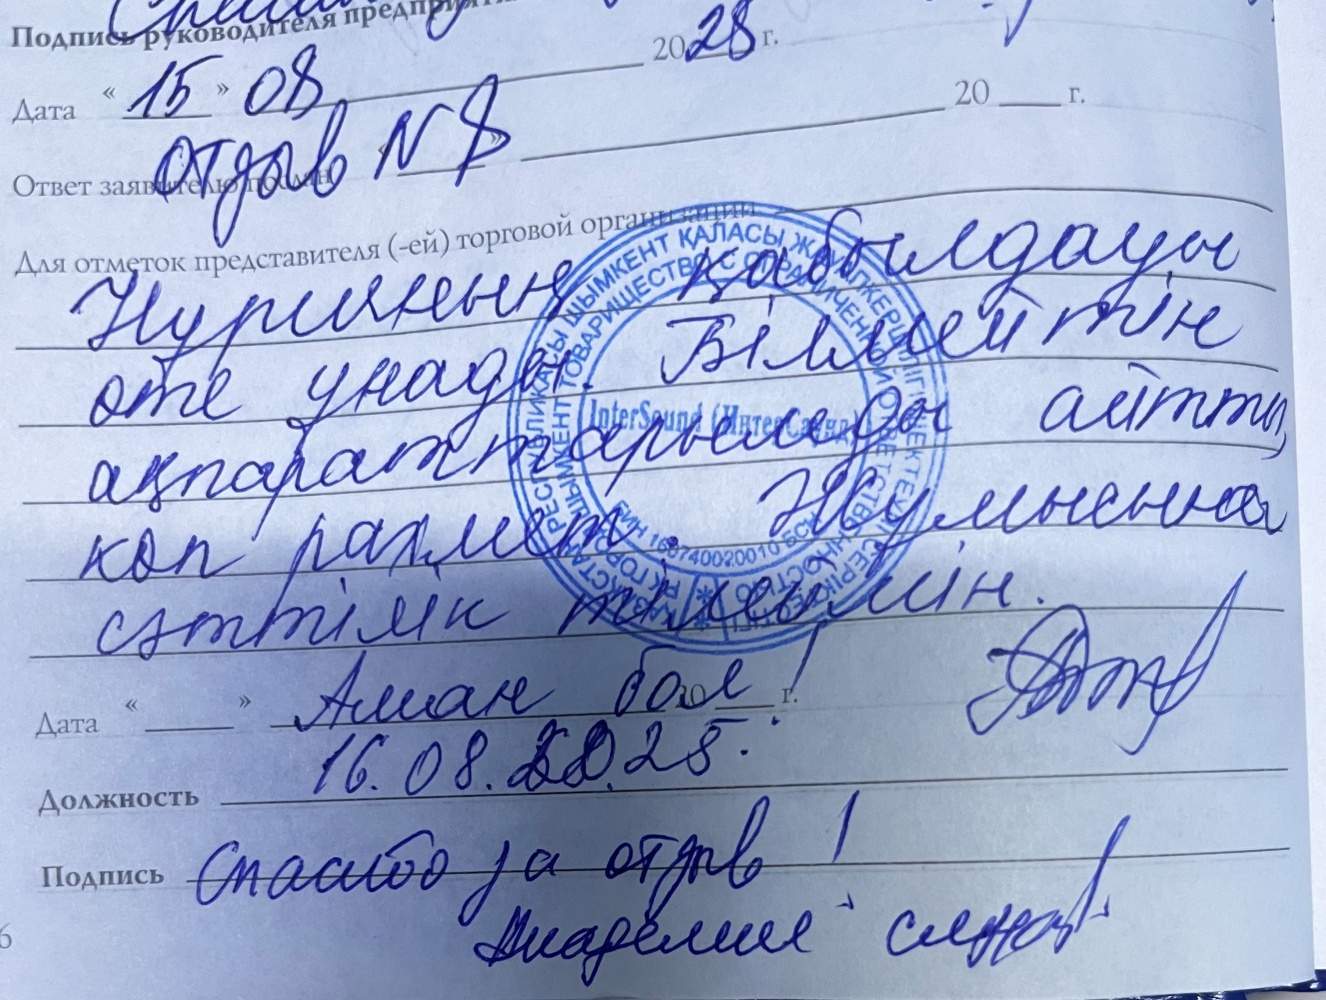 Спасибо
Подпись руководителя предприятия
Дата «15» 08 2025 г.
Отзыв N 8
Ответ заявителю послан « » 20 г.
Для отметок представителя (-ей) торговой организации
Нуриянын қабылдауы
өте унады. Білмейтін
ақпараттарымды айтты,
көп рахмет. Жумысына
сәттілік тілеймін.
Дата « » Аман бол! 20 г.
16.08.2025.
Должность
Подпись Спасибо за отзыв!
Академия слуха
6
ҚАЗАҚСТАН РЕСПУБЛИКАСЫ ШЫМКЕНТ ҚАЛАСЫ ЖАУАПКЕРШІЛІГІ ШЕКТЕУЛІ СЕРІКТЕСТІГІ
РК ГОРОД ШЫМКЕНТ ТОВАРИЩЕСТВО С ОГРАНИЧЕННОЙ ОТВЕТСТВЕННОСТЬЮ
InterSound (ИнтерСаунд)
БИН 160740020010 БСН